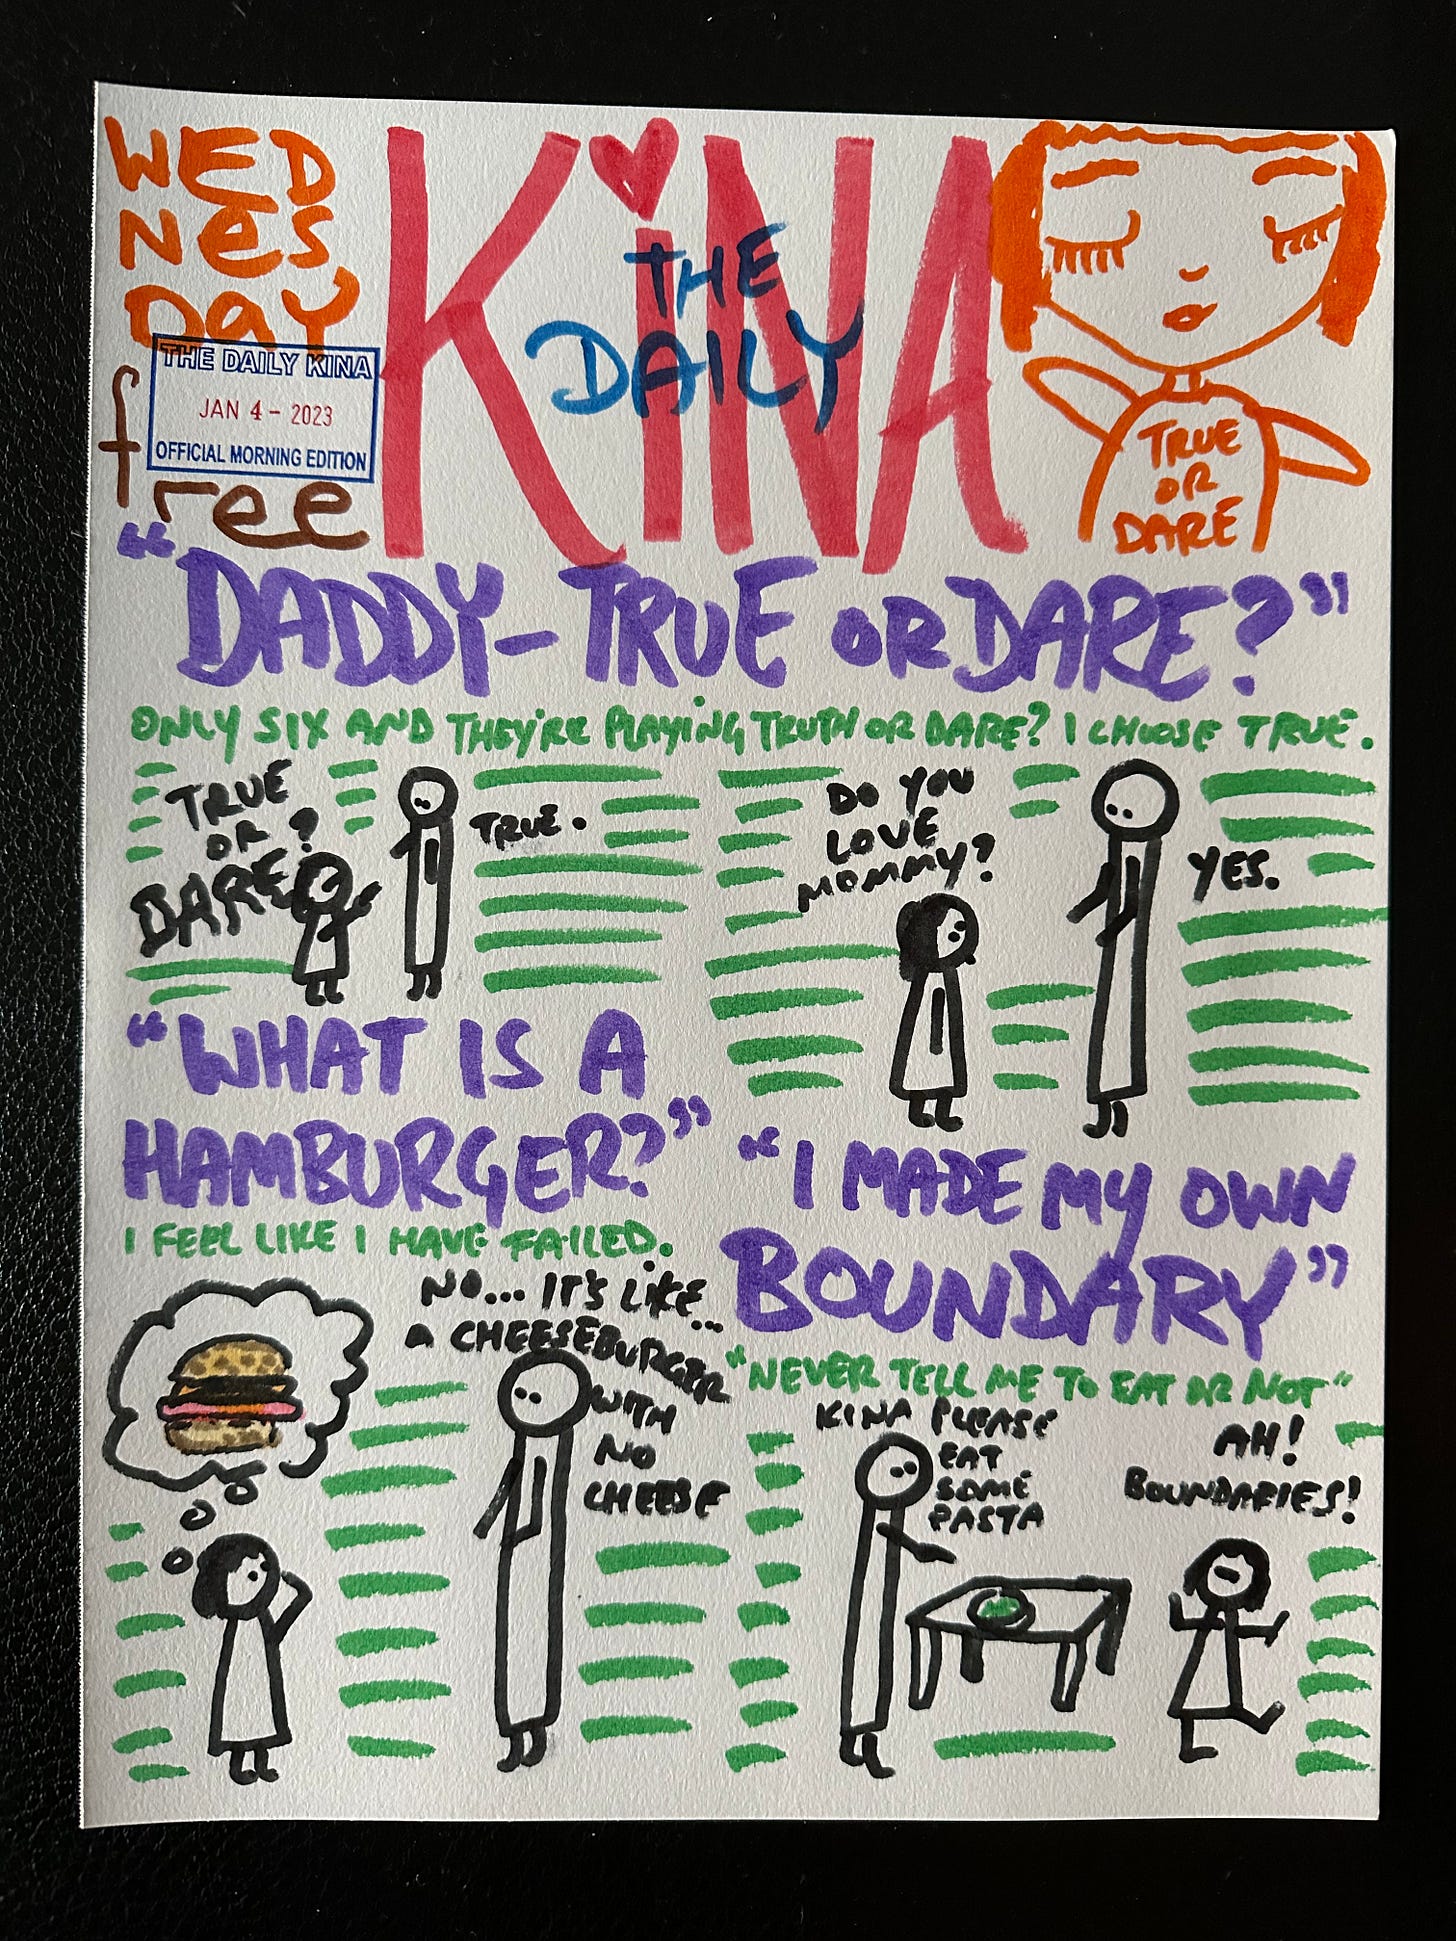 WED
Nes,
Day
THE DAILY KINA
JAN 4 - 2023
OFFICIAL MORNING EDITION
free
KiNA
THE
DAILY
TRUE
OR
DARE
"DADDY- TRUE OR DARE?"
ONLY SIX AND THEY'RE PLAYING TRUTH OR DARE? I CHOOSE TRUE.
TRUE
OR ?
DARE
TRUE.
DO YOU
LOVE
MOMMY?
YES.
"WHAT IS A
HAMBURGER?"
I FEEL LIKE I HAVE FAILED.
NO... IT'S LIKE...
A CHEESEBURGER
WITH
NO
CHEESE
"I MADE MY OWN
BOUNDARY"
"NEVER TELL ME TO EAT OR NOT"
KINA PLEASE
EAT
SOME
PASTA
AH!
BOUNDARIES!